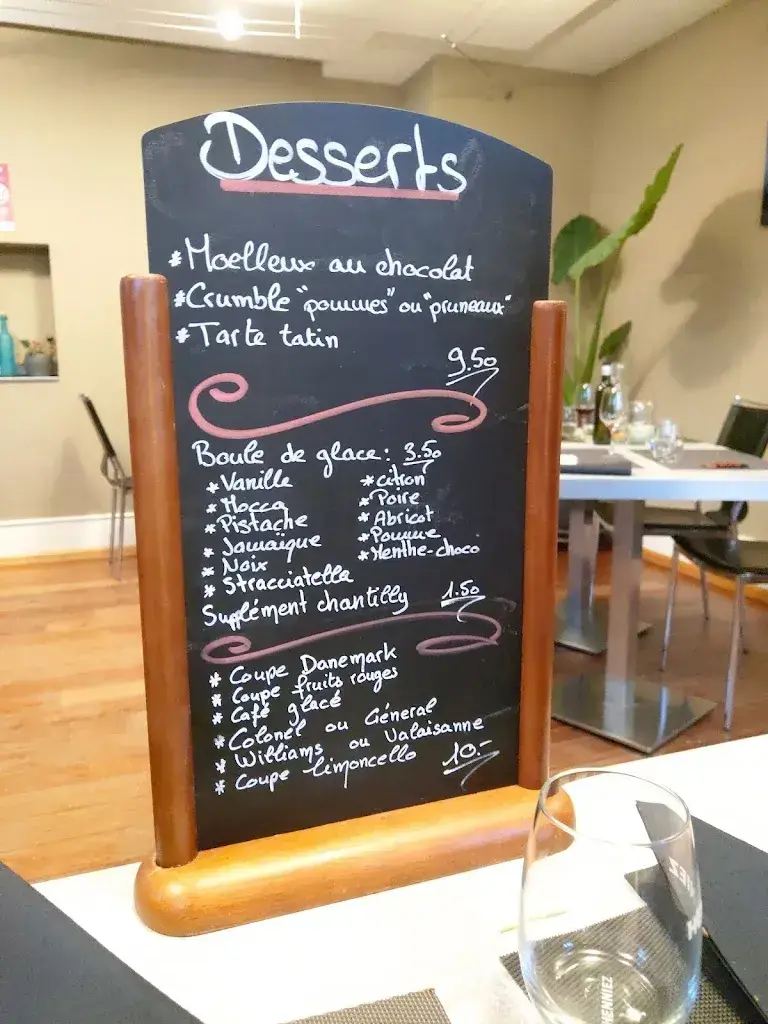 Desserts
* Moelleux au chocolat
* Crumble "pommes" ou "pruneaux"
* Tarte tatin
9.50
Boule de glace: 3.50
* Vanille
* Mocca
* Pistache
* Jamaïque
* Noix
* Stracciatella
* citron
* Poire
* Abricot
* Pomme
* Menthe-choco
Supplément chantilly 1.50
* Coupe Danemark
* Coupe fruits rouges
* Café glacé
* Colonel ou Général
* Williams ou Valaisanne
* Coupe limoncello 10.-
HENNIEZ